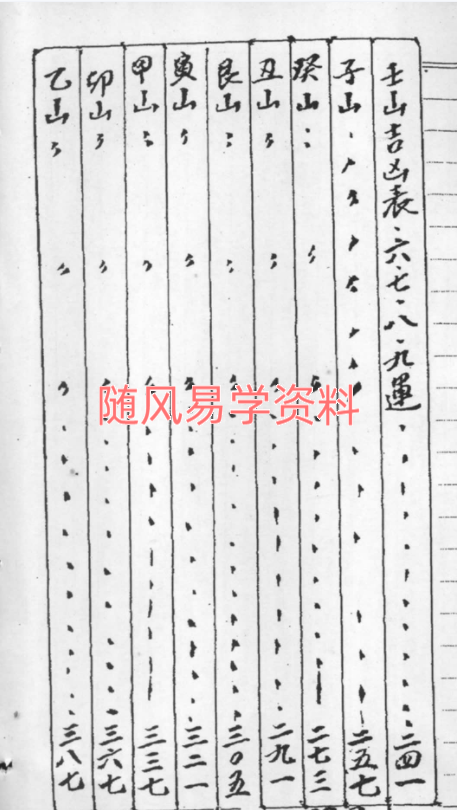 壬山吉凶表、六、七、八、九運、二四一
子山 二五七
癸山 二七三
丑山 二九一
艮山 三〇五
寅山 三二一
甲山 三三七
卯山 三六七
乙山 三八七
随风易学资料